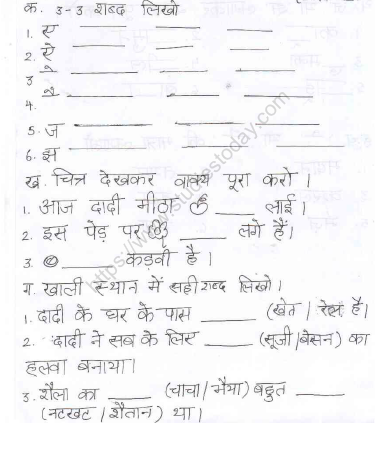 क. ३-३ शब्द लिखो
1. ए ______ ______ ______
2. ऐ ______ ______ ______
3 े ______ ______ ______
4. ै ______ ______ ______
5. ज ______ ______
6. झ ______ ______
ख. चित्र देखकर वाक्य पूरा करो।
1. आज दादी मीठा ____ लाई।
2. इस पेड़ पर ____ लगे हैं।
3. ____ कड़वी है।
ग. खाली स्थान में सही शब्द लिखो।
1. दादी के घर के पास ______ (खेत / रेल है।
2. दादी ने सब के लिए ____ (सूजी/बेसन) का
हलवा बनाया।
3. शैला का ____ (चाचा/भैया) बहुत ____
(नटखट / शैतान) था।
https://www.studiestoday.com